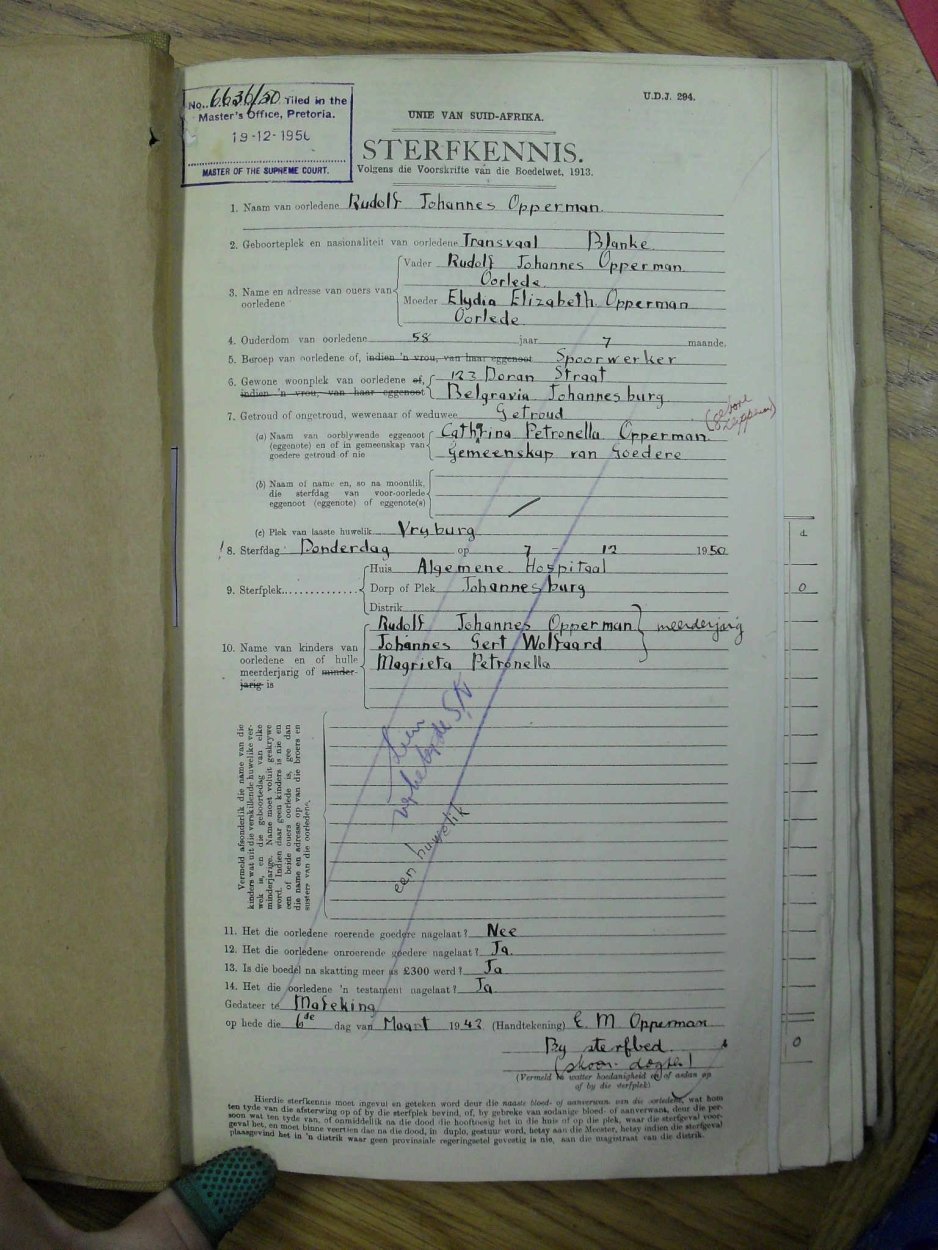 U.D.J. 294.
No. 6636/50 Filed in the
Master's Office, Pretoria.
19-12-1950
MASTER OF THE SUPREME COURT.
UNIE VAN SUID-AFRIKA.
STERFKENNIS.
Volgens die Voorskrifte van die Boedelwet, 1913.
1. Naam van oorledene Rudolf Johannes Opperman.
2. Geboorteplek en nasionaliteit van oorledene Transvaal Blanke
3. Name en adresse van ouers van oorledene
Vader Rudolf Johannes Opperman
Oorlede
Moeder Elydia Elizabeth Opperman
Oorlede
4. Ouderdom van oorledene 58 jaar 7 maande.
5. Beroep van oorledene of, indien 'n vrou, van haar eggenoot Spoorwerker
6. Gewone woonplek van oorledene of, indien 'n vrou, van haar eggenoot
123 Doran Straat
Belgravia Johannesburg
7. Getroud of ongetroud, wewenaar of weduwee Getroud
(gebore
(a) Naam van oorblywende eggenoot (eggenote) en of in gemeenskap van goedere getroud of nie
Cathrina Petronella Opperman
Gemeenskap van Goedere
(b) Naam of name en, so na moontlik, die sterfdag van voor-oorlede eggenoot (eggenote) of eggenote(s)
(c) Plek van laaste huwelik Vryburg
8. Sterfdag Donderdag op 7 - 12 1950
9. Sterfplek
Huis Algemene Hospitaal
Dorp of Plek Johannesburg
Distrik
10. Name van kinders van oorledene en of hulle meerderjarig of minderjarig is
Rudolf Johannes Opperman
Johannes Gert Wolfaard
Magrieta Petronella
meerderjarig
een huwelik
Vermeld afsonderlik die name van die
kinders wat uit die verskillende huwelike ver-
wek is, en die geboortedag van elke
minderjarige. Name moet voluit geskrywe
word. Indien daar geen kinders is nie en
een of beide ouers oorlede is, gee dan
die name en adresse op van die broers en
susters van die oorledene.
11. Het die oorledene roerende goedere nagelaat? Nee
12. Het die oorledene onroerende goedere nagelaat? Ja
13. Is die boedel na skatting meer as £300 werd? Ja
14. Het die oorledene 'n testament nagelaat? Ja
Gedateer te Mafeking
op hede die 6de dag van Maart 1943 (Handtekening) E. M Opperman
By sterfbed
(skoon dogter)
(Vermeld in watter hoedanigheid en of aldan op
of by die sterfplek)
Hierdie sterfkennis moet ingevul en geteken word deur die naaste bloed- of aanverwant van die oorledene, wat hom
ten tyde van die afsterwing op of by die sterfplek bevind, of, by gebreke van sodanige bloed- of aanverwant, deur die per-
soon wat ten tyde van, of onmiddelik na die dood die hooftoesig het in die huis of op die plek, waar die sterfgeval voor-
geval het, en moet binne veertien dae na die dood, in duplo, gestuur word, hetsy aan die Meester, hetsy indien die sterfgeval
plaasgevind het in 'n distrik waar geen provinsiale regeringsetel gevestig is nie, aan die magistraat van die distrik.